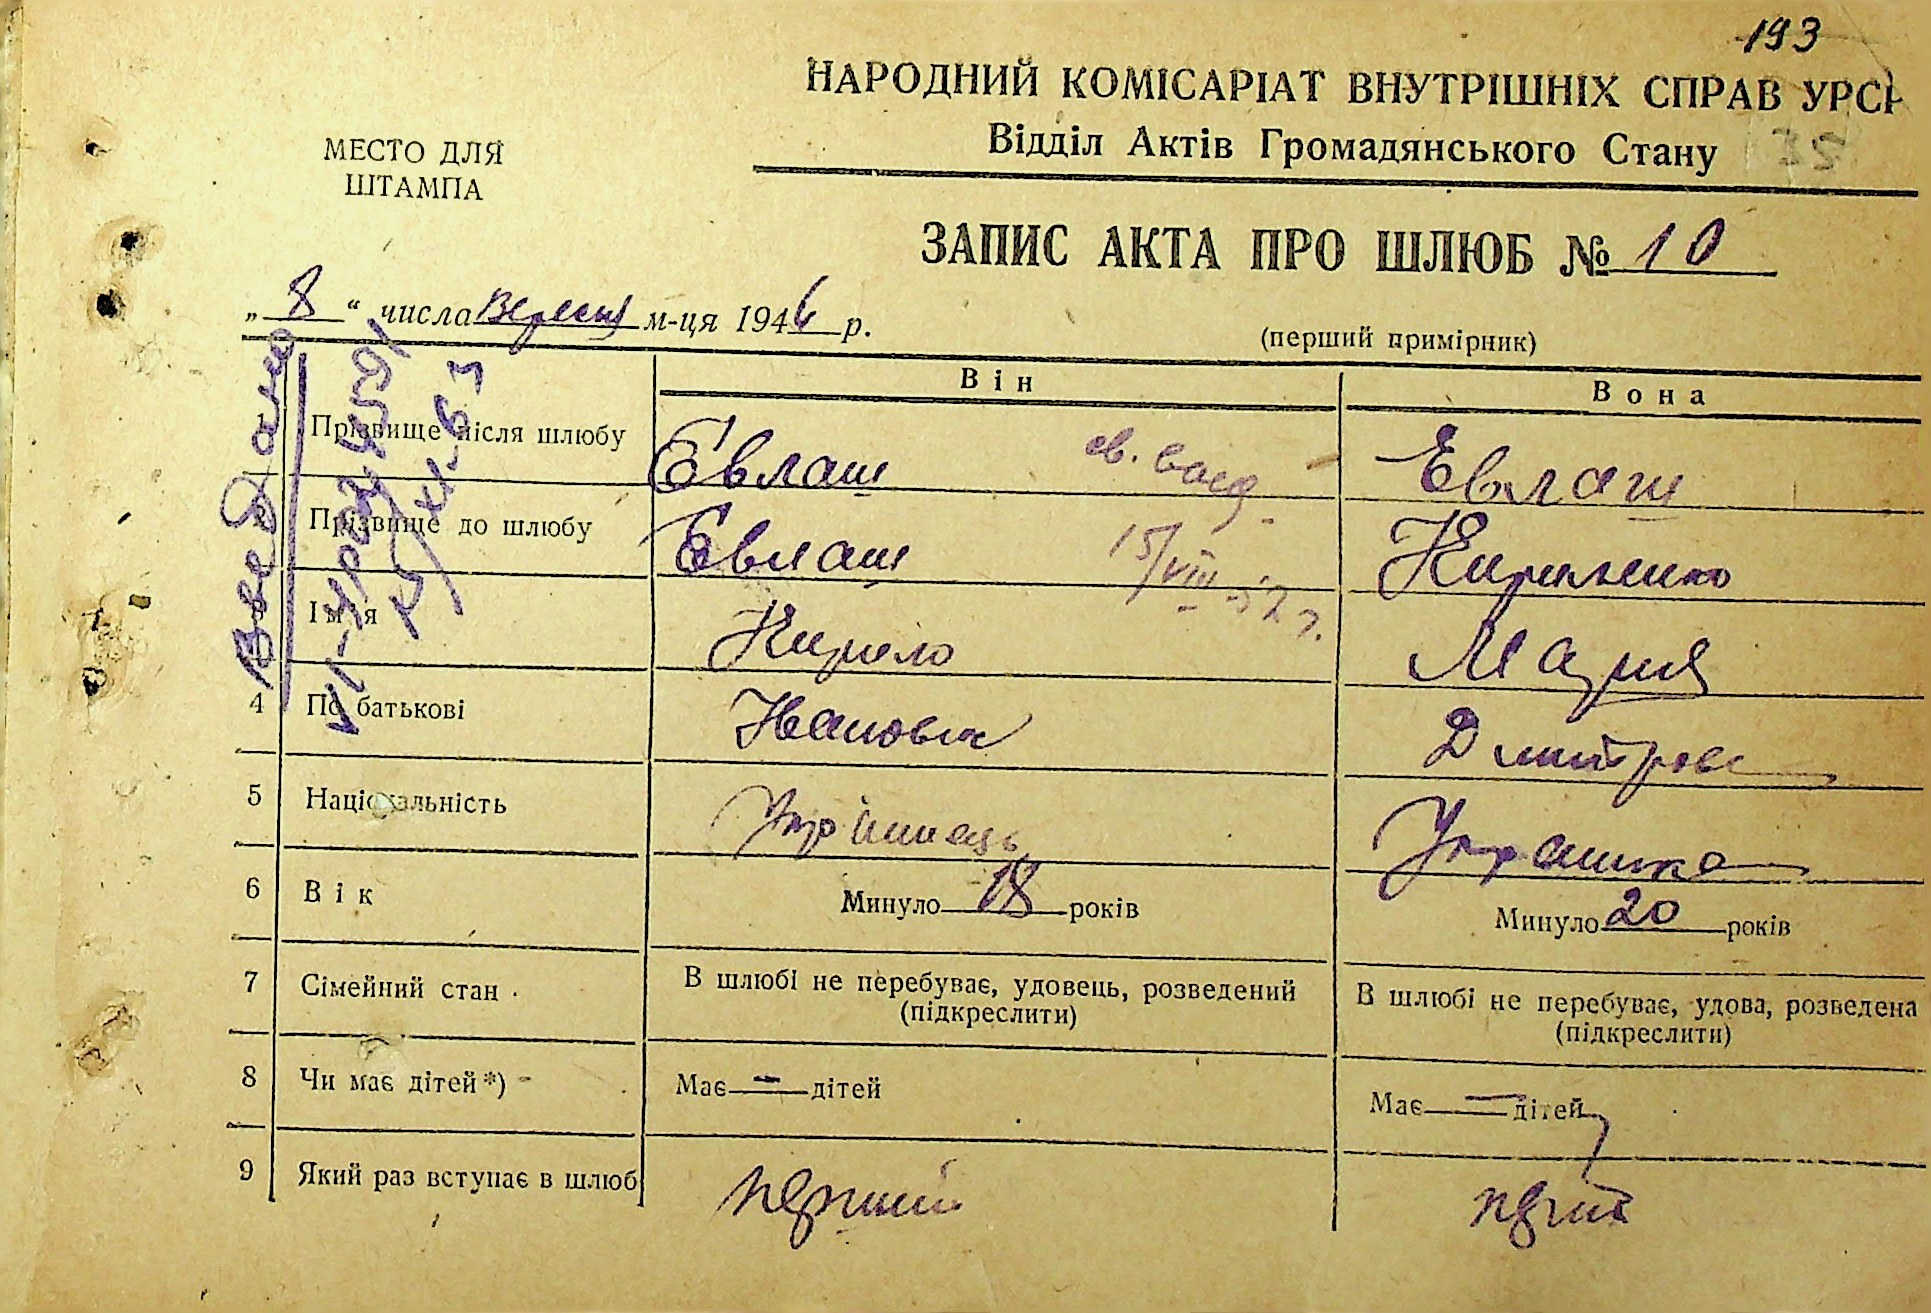 193
НАРОДНИЙ КОМІСАРІАТ ВНУТРІШНІХ СПРАВ УРСР
Відділ Актів Громадянського Стану
МЕСТО ДЛЯ
ШТАМПА
ЗАПИС АКТА ПРО ШЛЮБ № 10
„ 8 “ числа Вересня м-ця 1946 р.
(перший примірник)
Він Вона
1 Прізвище після шлюбу Евлаш Евлаш
св. выд.
2 Прізвище до шлюбу Евлаш Кириленко
15/VIII-52 г.
3 Ім'я Кирило Мария
4 По батькові Иванович Дмитровс
5 Національність Украінець Украинка
6 Вік Минуло 18 років Минуло 20 років
7 Сімейний стан В шлюбі не перебуває, удовець, розведений (підкреслити) В шлюбі не перебуває, удова, розведена (підкреслити)
8 Чи має дітей*) Має — дітей Має — дітей
9 Який раз вступає в шлюб перший